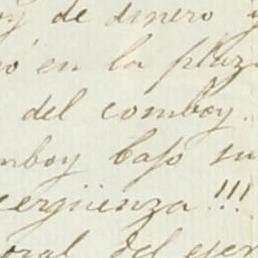 oy de dinero y
ó en la plaza
del comboy.
mboy bajo su
ergüenza!!!
oral del ejer